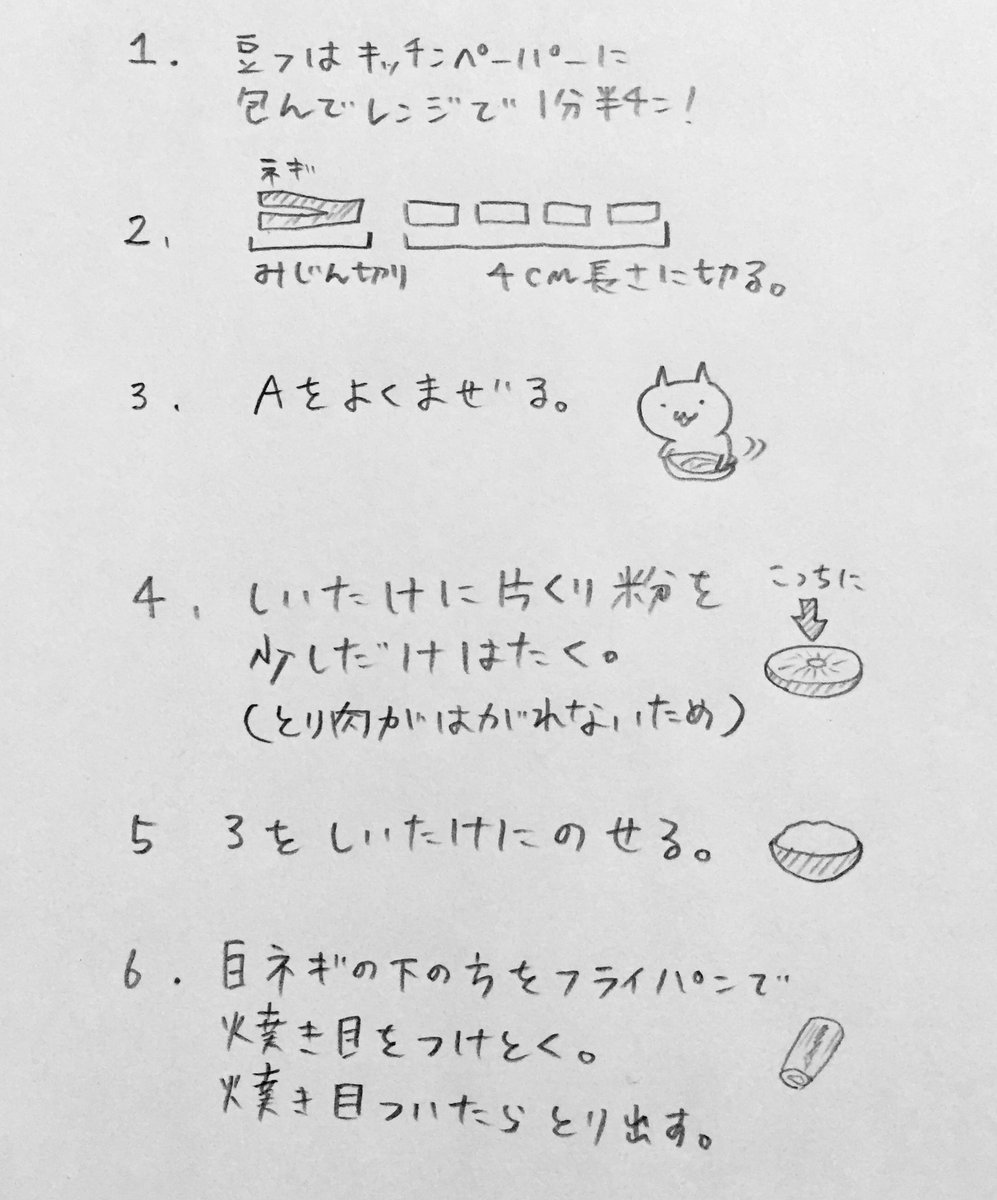 1. 豆フはキッチンペーパーに
包んでレンジで1分半チン!
2. ネギ
みじん切り 4cm長さに切る。
3. Aをよくまぜる。
4. しいたけに片くり粉を
少しだけはたく。
(とり肉がはがれないため)
こっちに
5 3をしいたけにのせる。
6. 白ネギの下の方をフライパンで
焼き目をつけとく。
焼き目ついたらとり出す。